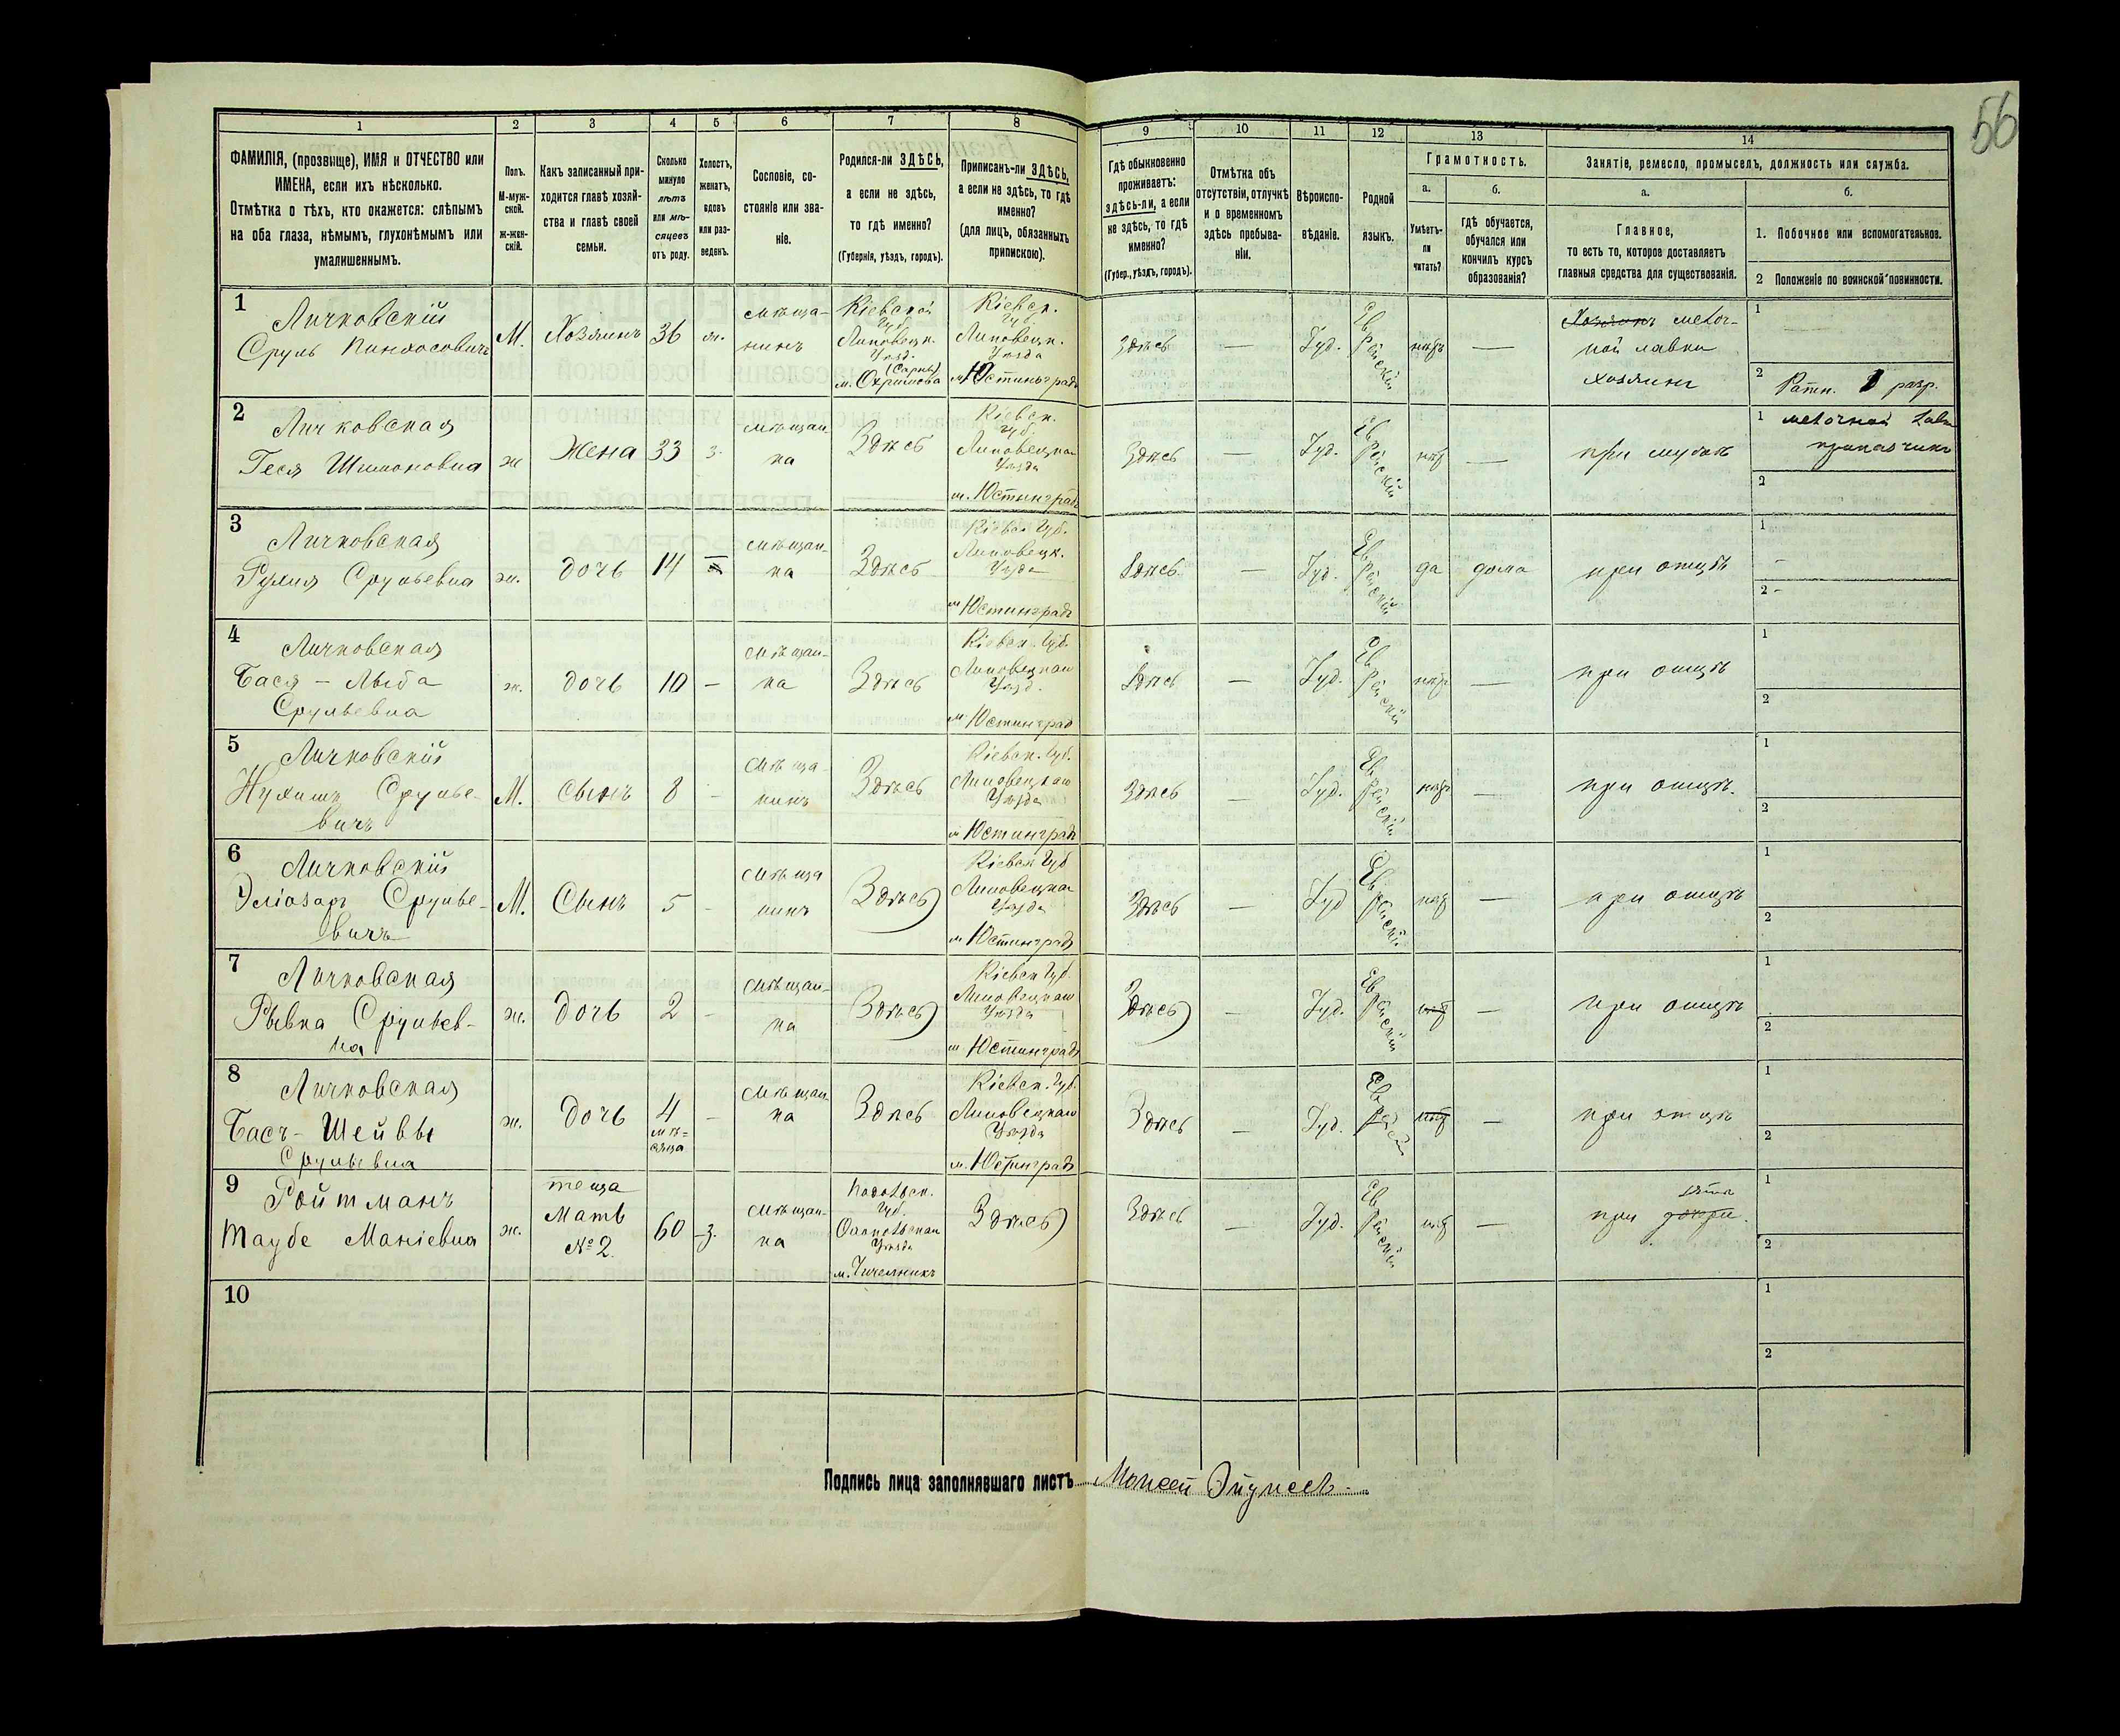 56
1 2 3 4 5 6 7 8 9 10 11 12 13 14
ФАМИЛІЯ, (прозвище), ИМЯ и ОТЧЕСТВО или
ИМЕНА, если ихъ нѣсколько.
Отмѣтка о тѣхъ, кто окажется: слѣпымъ
на оба глаза, нѣмымъ, глухонѣмымъ или
умалишеннымъ.
Полъ.
М-муж-
ской.
Ж-жен-
скій.
Какъ записанный при-
ходится главѣ хозяй-
ства и главѣ своей
семьи.
Сколько
минуло
лѣтъ
или мѣ-
сяцевъ
отъ роду.
Холостъ,
женатъ,
вдовъ
или раз-
веденъ.
Сословіе, со-
стояніе или зва-
ніе.
Родился-ли ЗДѢСЬ,
а если не здѣсь,
то гдѣ именно?
(Губернія, уѣздъ, городъ).
Приписанъ-ли ЗДѢСЬ,
а если не здѣсь, то гдѣ
именно?
(для лицъ, обязанныхъ
припискою).
Гдѣ обыкновенно
проживаетъ:
здѣсь-ли, а если
не здѣсь, то гдѣ
именно?
(Губер., уѣздъ, городъ).
Отмѣтка объ
отсутствіи, отлучкѣ
и о временномъ
здѣсь пребыва-
ніи.
Вѣроиспо-
вѣданіе.
Родной
языкъ.
Грамотность.
а.
Умѣетъ-
ли
читать?
б.
Гдѣ обучается,
обучался или
кончилъ курсъ
образованія?
Занятіе, ремесло, промыселъ, должность или служба.
а.
Главное,
то есть то, которое доставляетъ
главныя средства для существованія.
б.
1. Побочное или вспомогательное.
2 Положеніе по воинской повинности.
1
Личковскій
Сруль Пинхосовичъ
М.
Хозяинъ
36
ж.
мѣща-
нинъ
Кіевской
Губ.
Липовецк.
Уѣзд.
м.
Кіевск.
Губ.
Липовецк.
Уѣзда
м. Юстинградъ
Здѣсь
—
Іуд.
Еврейскій
—
Хозяинъ мелоч-
ной лавки
хозяинъ
1
2 Ратн. разр.
2
Личковская
Геся Шимоновна
ж
Жена
33
з.
мѣщан-
ка
Здѣсь
Кіевск.
Губ.
Липовецкаго
Уѣзда
м. Юстинградъ
Здѣсь
—
Іуд.
Еврейскій
—
при мужѣ
1 мелочной
2
3
Личковская
Срульевна
ж.
дочь
14
—
мѣщан-
ка
Здѣсь
Кіевск. Губ.
Липовецк.
Уѣзда
м Юстинградъ
Здѣсь
—
Іуд.
Еврейскій
да
дома
при отцѣ
1 -
2 -
4
Личковская
Бася - Лыба
Срульевна
ж.
дочь
10
—
мѣщан-
ка
Здѣсь
Кіевск. Губ.
Липовецкаго
Уѣзд.
м. Юстинград
Здѣсь
—
Іуд.
Еврейскій
—
при отцѣ
1
2
5
Личковскій
Нухимъ Срулье-
вичъ
М.
Сынъ
8
-
мѣща-
нинъ
Здѣсь
Кіевск. Губ.
Липовецкаго
Уѣзда
м Юстинградъ
Здѣсь
—
Іуд.
Еврейскій
—
при отцѣ.
1
2
6
Личковскій
Эліозаръ Срулье-
вичъ
М.
Сынъ
5
-
мѣща
нинъ
Здѣсь
Кіевск Губ
Липовецкаго
Уѣзда
м Юстинградъ
Здѣсь
—
Іуд
Еврейскій
—
при отцѣ
1
2
7
Личковская
Рывка Срульев-
на
ж.
дочь
2
-
мѣщан-
ка
Здѣсь
Кіевск Губ
Липовецкаго
Уѣзда
м Юстинградъ
Здѣсь
-
Іуд.
Еврейскій
—
при отцѣ
1
2
8
Личковская
Шейвы
Срульевна
ж.
дочь
4
мѣ-
сяца
-
мѣщан
ка
Здѣсь
Кіевск. Губ
Липовецкаго
Уѣзда
м. Юстинградъ
Здѣсь
—
Іуд.
Еврей
—
при отцѣ
1
2
9
Ройтманъ
Таубе Маніевна
ж.
теща
Мать
№ 2.
60
з.
мѣщан-
ка
Подольск.
Губ.
Уѣзда
м. Чичельникъ
Здѣсь
Здѣсь
—
Іуд.
Еврейскій
—
при
1
2
10
1
2
Подпись лица заполнявшаго листъ Моисей